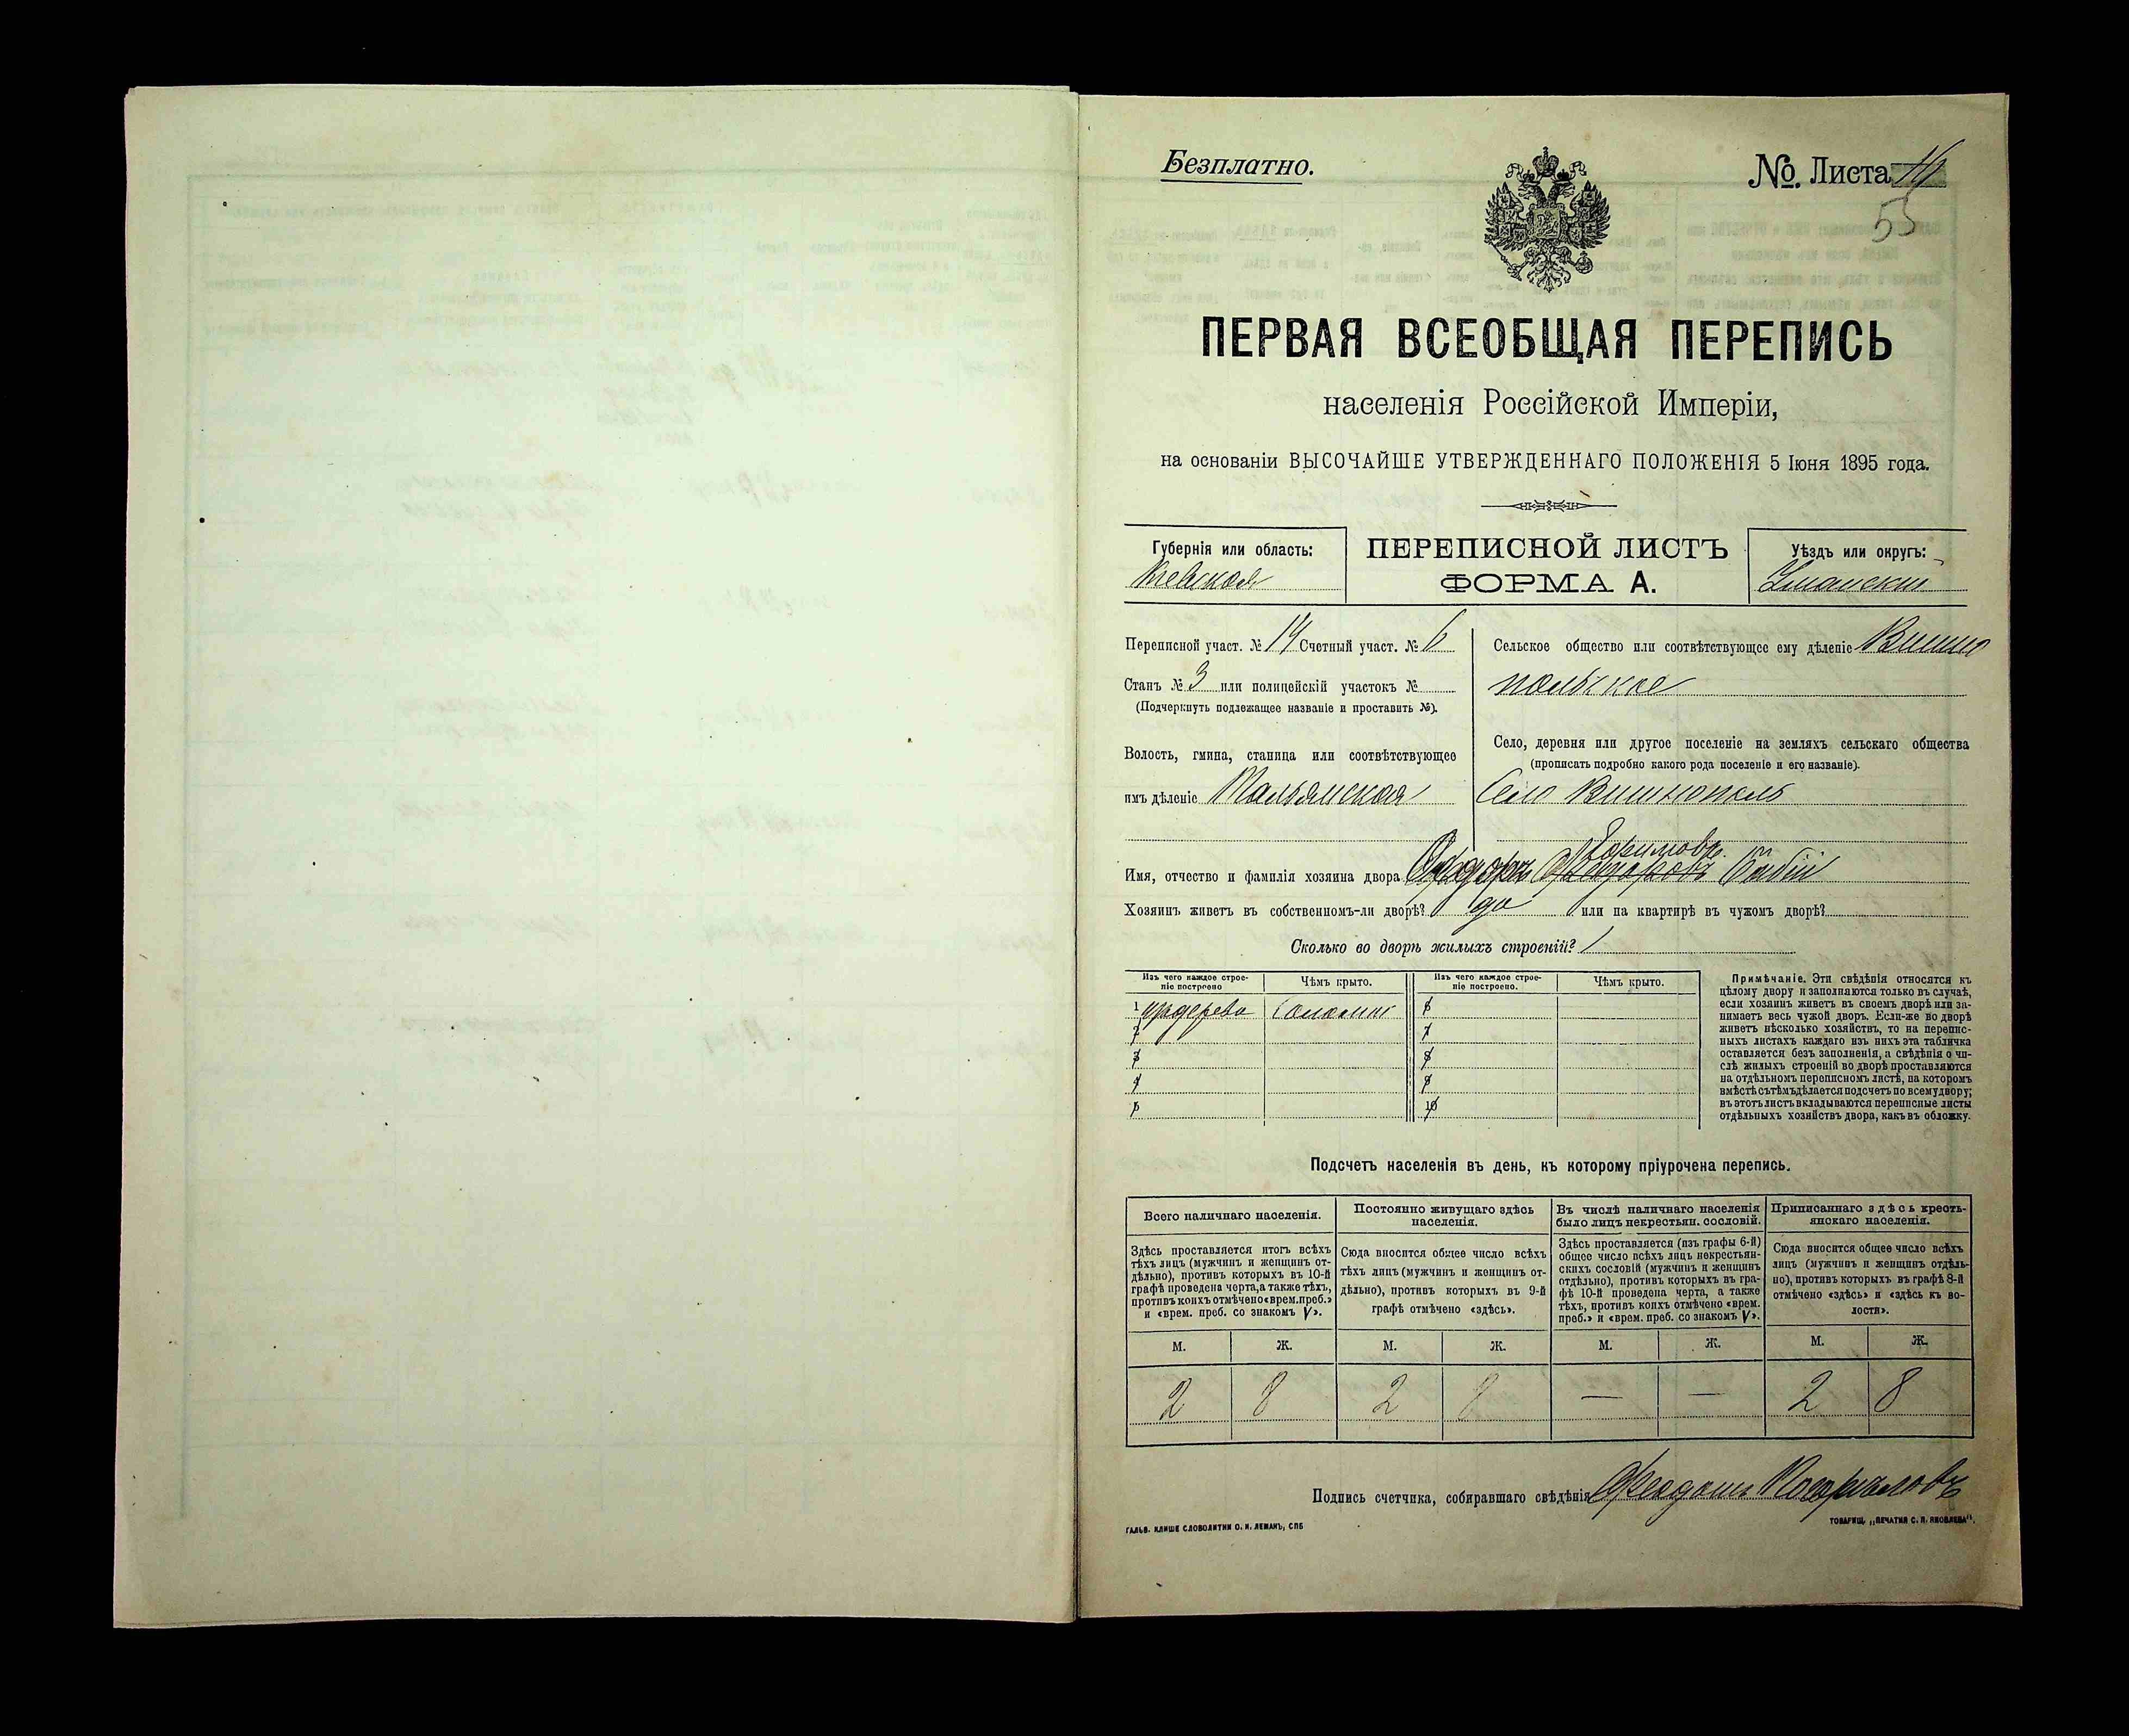 Безплатно.
№. Листа
55
ПЕРВАЯ ВСЕОБЩАЯ ПЕРЕПИСЬ
населенія Россійской Имперіи,
на основаніи ВЫСОЧАЙШЕ УТВЕРЖДЕННАГО ПОЛОЖЕНІЯ 5 Іюня 1895 года.
Губернія или область:
Кіевская
ПЕРЕПИСНОЙ ЛИСТЪ
ФОРМА А.
Уѣздъ или округъ:
Уманскій
Переписной участ. № 14 Счетный участ. № 6
Станъ № 3 или полицейскій участокъ №
(Подчеркнуть подлежащее названіе и проставить №).
Волость, гмина, станица или соотвѣтствующее
имъ дѣленіе Тальянская
Сельское общество или соотвѣтствующее ему дѣленіе Вишно
польское
Село, деревня или другое поселеніе на земляхъ сельскаго общества
(прописать подробно какого рода поселеніе и его названіе).
Село Вишнополь
Ефимовъ
Имя, отчество и фамилія хозяина двора Федоръ Бабій
Хозяинъ живетъ въ собственномъ-ли дворѣ? да или на квартирѣ въ чужомъ дворѣ?
Сколько во дворѣ жилыхъ строеній? 1
Изъ чего каждое строе-
ніе построено
Чѣмъ крыто.
Изъ чего каждое строе-
ніе построено.
Чѣмъ крыто.
1 Соломии 6
2 7
3 8
4 9
5 10
Примѣчаніе. Эти свѣдѣнія относятся къ
цѣлому двору и заполняются только въ случаѣ,
если хозяинъ живетъ въ своемъ дворѣ или за-
нимаетъ весь чужой дворъ. Если-же во дворѣ
живетъ нѣсколько хозяйствъ, то на перепис-
ныхъ листахъ каждаго изъ нихъ эта табличка
оставляется безъ заполненія, а свѣдѣнія о чи-
слѣ жилыхъ строеній во дворѣ проставляются
на отдѣльномъ переписномъ листѣ, на которомъ
вмѣстѣ съ тѣмъ дѣлается подсчетъ по всему двору;
въ этотъ листъ вкладываются переписные листы
отдѣльныхъ хозяйствъ двора, какъ въ обложку.
Подсчетъ населенія въ день, къ которому пріурочена перепись.
Всего наличнаго населенія.
Здѣсь проставляется итогъ всѣхъ
тѣхъ лицъ (мужчинъ и женщинъ от-
дѣльно), противъ которыхъ въ 10-й
графѣ проведена черта, а также тѣхъ,
противъ коихъ отмѣчено «врем. преб.»
и «врем. преб. со знакомъ V».
Постоянно живущаго здѣсь
населенія.
Сюда вносится общее число всѣхъ
тѣхъ лицъ (мужчинъ и женщинъ от-
дѣльно), противъ которыхъ въ 9-й
графѣ отмѣчено «здѣсь».
Въ числѣ наличнаго населенія
было лицъ некрестьян. сословій.
Здѣсь проставляется (изъ графы 6-й)
общее число всѣхъ лицъ некрестьян-
скихъ сословій (мужчинъ и женщинъ
отдѣльно), противъ которыхъ въ гра-
фѣ 10-й проведена черта, а также
тѣхъ, противъ коихъ отмѣчено «врем.
преб.» и «врем. преб. со знакомъ V».
Приписаннаго здѣсь кресть-
янскаго населенія.
Сюда вносится общее число всѣхъ
лицъ (мужчинъ и женщинъ отдѣль-
но), противъ которыхъ въ графѣ 8-й
отмѣчено «здѣсь» и «здѣсь къ во-
лости».
М. Ж. М. Ж. М. Ж. М. Ж.
2 8 2 8 — — 2 8
Подпись счетчика, собиравшаго свѣдѣнія
ГАЛЬВ. КЛИШЕ СЛОВОЛИТНИ О. И. ЛЕМАНЪ, СПБ
ТОВАРИЩ. „ПЕЧАТНЯ С. П. ЯКОВЛЕВА".